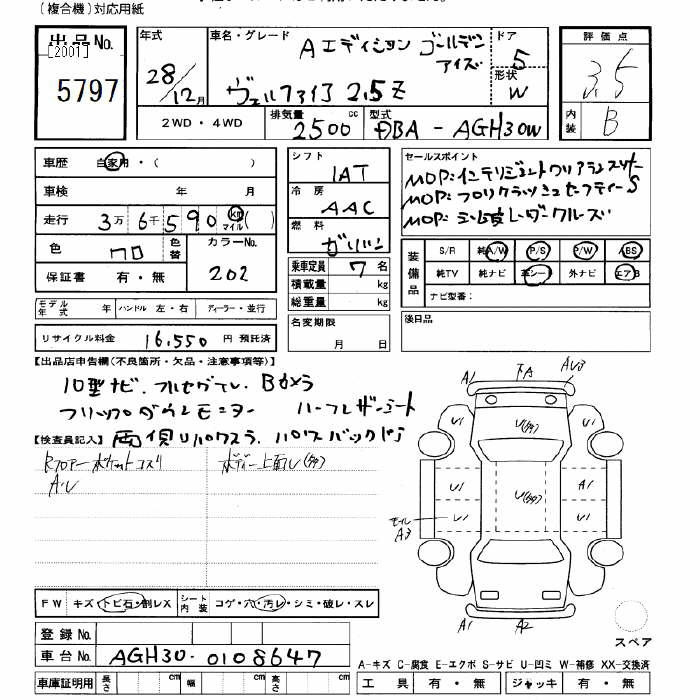 (複合機)対応用紙
出品No.
[2001]
5797
年式
28/12月
車名・グレード
Aエディション ゴールデン
アイズ
ヴェルファイア 2.5Z
ドア
5
形状
W
評価点
3.5
内装
B
2WD・4WD
排気量
2500 cc
型式
DBA-AGH30W
車歴 自家用・( )
車検 年 月
走行 3万 6千 590 km マイル ( )
色 クロ
色替
カラーNo.
202
保証書 有・無
シフト
IAT
冷房
AAC
燃料
ガソリン
乗車定員 7 名
積載量 kg
総重量 kg
セールスポイント
MOP:インテリジェントクリアランスソナー
MOP:プリクラッシュセーフティーS
MOP:ミリ波レーダークルーズ
装備品
S/R 純A/W P/S P/W ABS
純TV 純ナビ 革シート 外ナビ エアB
ナビ型番:
モデル年式 年 ハンドル 左・右 ディーラー・並行
リサイクル料金 16,550 円 預託済
名変期限
月 日
後日品
【出品店申告欄(不良箇所・欠品・注意事項等)】
10型ナビ.フルセグTV.Bカメラ
フリップダウンモニター ハーフレザーシート
両側リパワスラ.パワーバックドア
【検査員記入】
Rフロアーポケットコスリ
A・U
ボディー上面U(多)
A1
下A
AU3
U1
U(多)
U1
U1
U(多)
A1
モールA3
U1
U1
A1
A2
FW キズ・トビ石・割レX
シート内装 コゲ・穴・汚レ・シミ・破レ・スレ
登録No.
車台No. AGH30-0108647
車庫証明用 長さ cm 幅 cm 高さ cm
スペア
A-キズ C-腐食 E-エクボ S-サビ U-凹ミ W-補修 XX-交換済
工具 有・無 ジャッキ 有・無